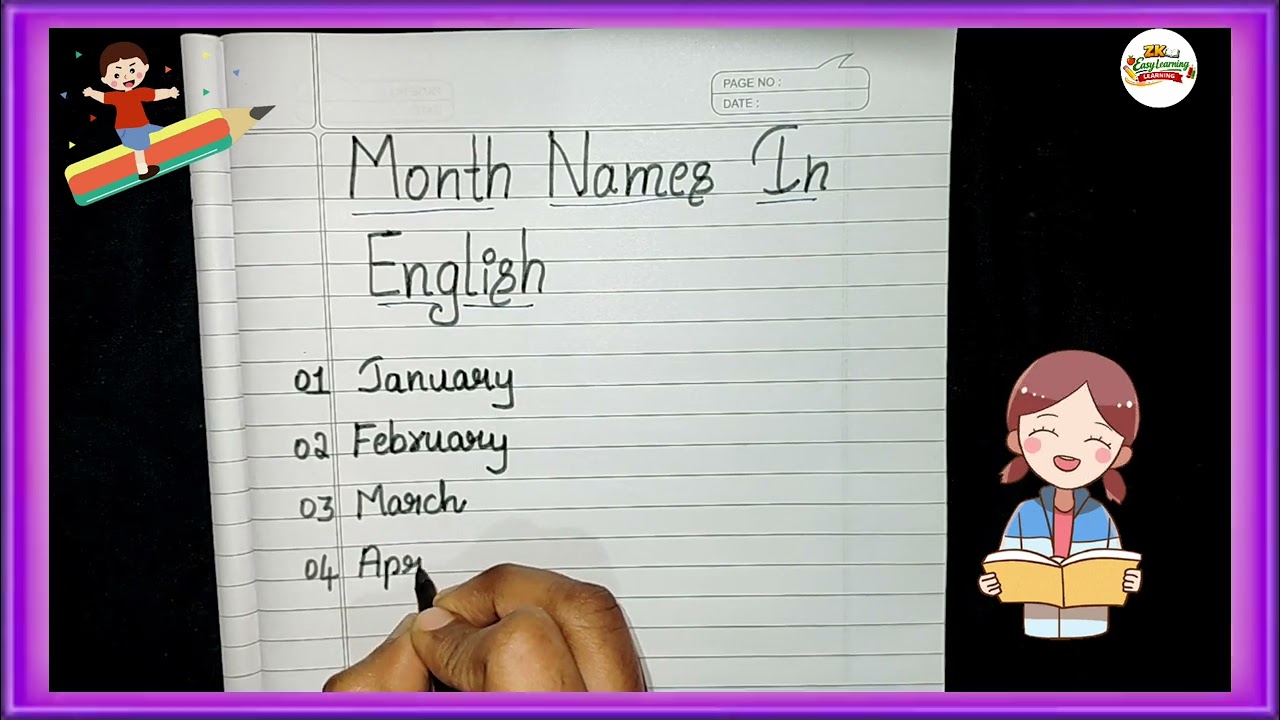 ZK
Easy Learning
LEARNING
PAGE NO :
DATE :
Month Names In
English
01 January
02 February
03 March
04 Apr